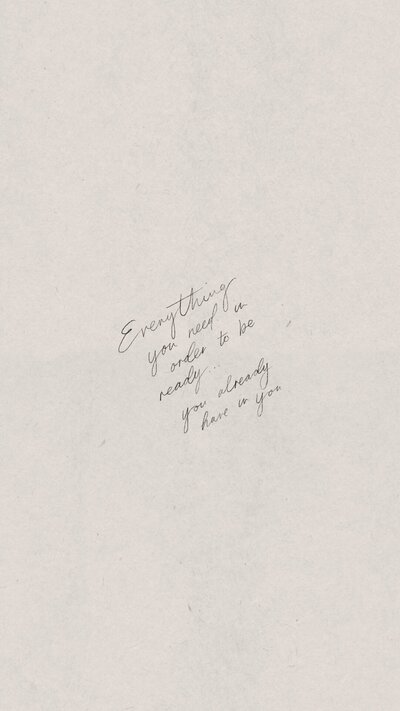 Everything
you need in
order to be
ready...
you already
have in you